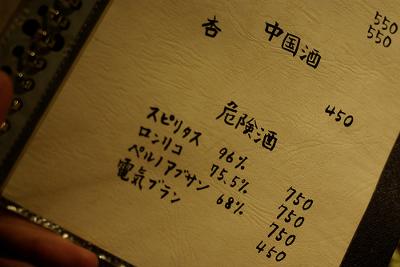 550
550
中国酒
杏 450
危険酒
スピリタス 96% 750
ロンリコ 75.5% 750
ペルノアブサン 68% 750
電気ブラン 450